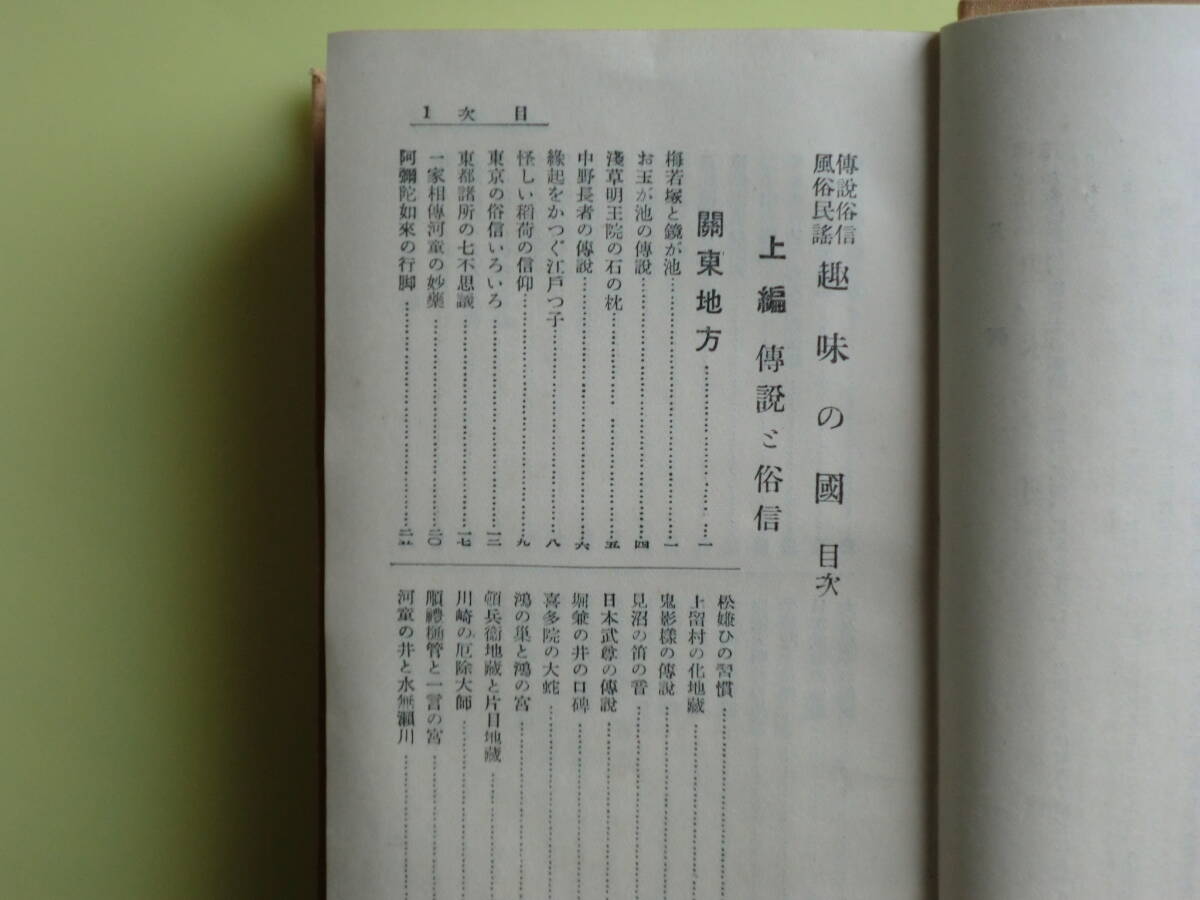 目次 1
傳說俗信
風俗民謠
趣味の國 目次
上編 傳說と俗信
關東地方……一
梅若塚と鏡が池……一
お玉が池の傳說……四
淺草明王院の石の枕……五
中野長者の傳說……六
緣起をかつぐ江戶つ子……八
怪しい稻荷の信仰……九
東京の俗信いろいろ……一三
東都諸所の七不思議……一七
一家相傳河童の妙藥……二〇
阿彌陀如來の行脚……
松嫌ひの習慣……
上留村の化地藏……
鬼影樣の傳說……
見沼の笛の音……
日本武尊の傳說……
堀兼の井の口碑……
喜多院の大蛇……
鴻の巢と鴻の宮……
頓兵衞地藏と片目地藏……
川崎の厄除大師……
順禮樋管と一言の宮……
河童の井と水無瀨川……